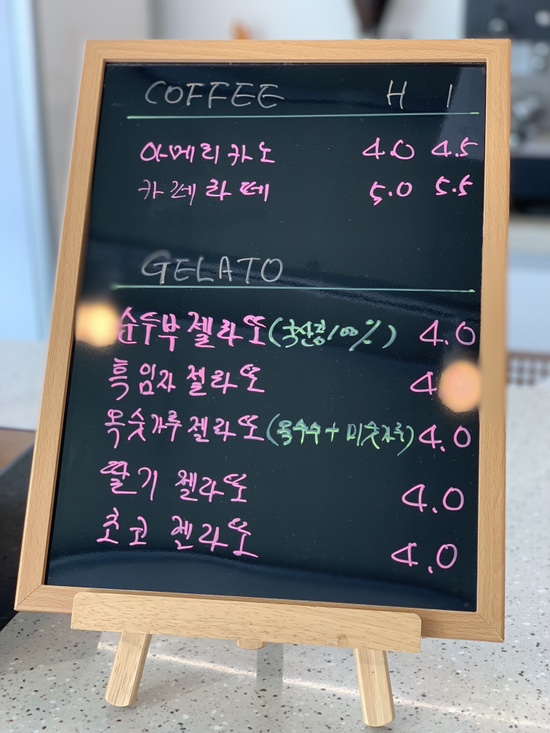 COFFEE H I
아메리카노 4.0 4.5
카페라떼 5.0 5.5
GELATO
순두부 젤라또 (국산콩 100%) 4.0
흑임자 젤라또
옥숫가루 젤라또 (옥수수 + 미숫가루) 4.0
딸기 젤라또 4.0
초코 젤라또 4.0